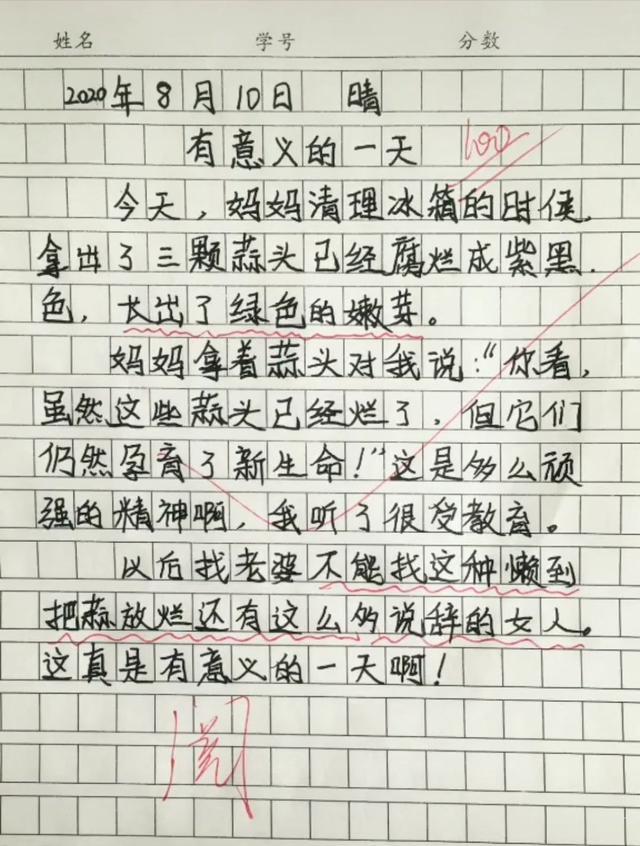 姓名 学号 分数
2020年8月10日 晴
有意义的一天 100
今天，妈妈清理冰箱的时候，
拿出了三颗蒜头已经腐烂成紫黑
色，长出了绿色的嫩芽。
妈妈拿着蒜头对我说：“你看，
虽然这些蒜头已经烂了，但它们
仍然孕育了新生命！”这是多么顽
强的精神啊，我听了很受教育。
以后找老婆不能找这种懒到
把蒜放烂还有这么多说辞的女人。
这真是有意义的一天啊！
阅